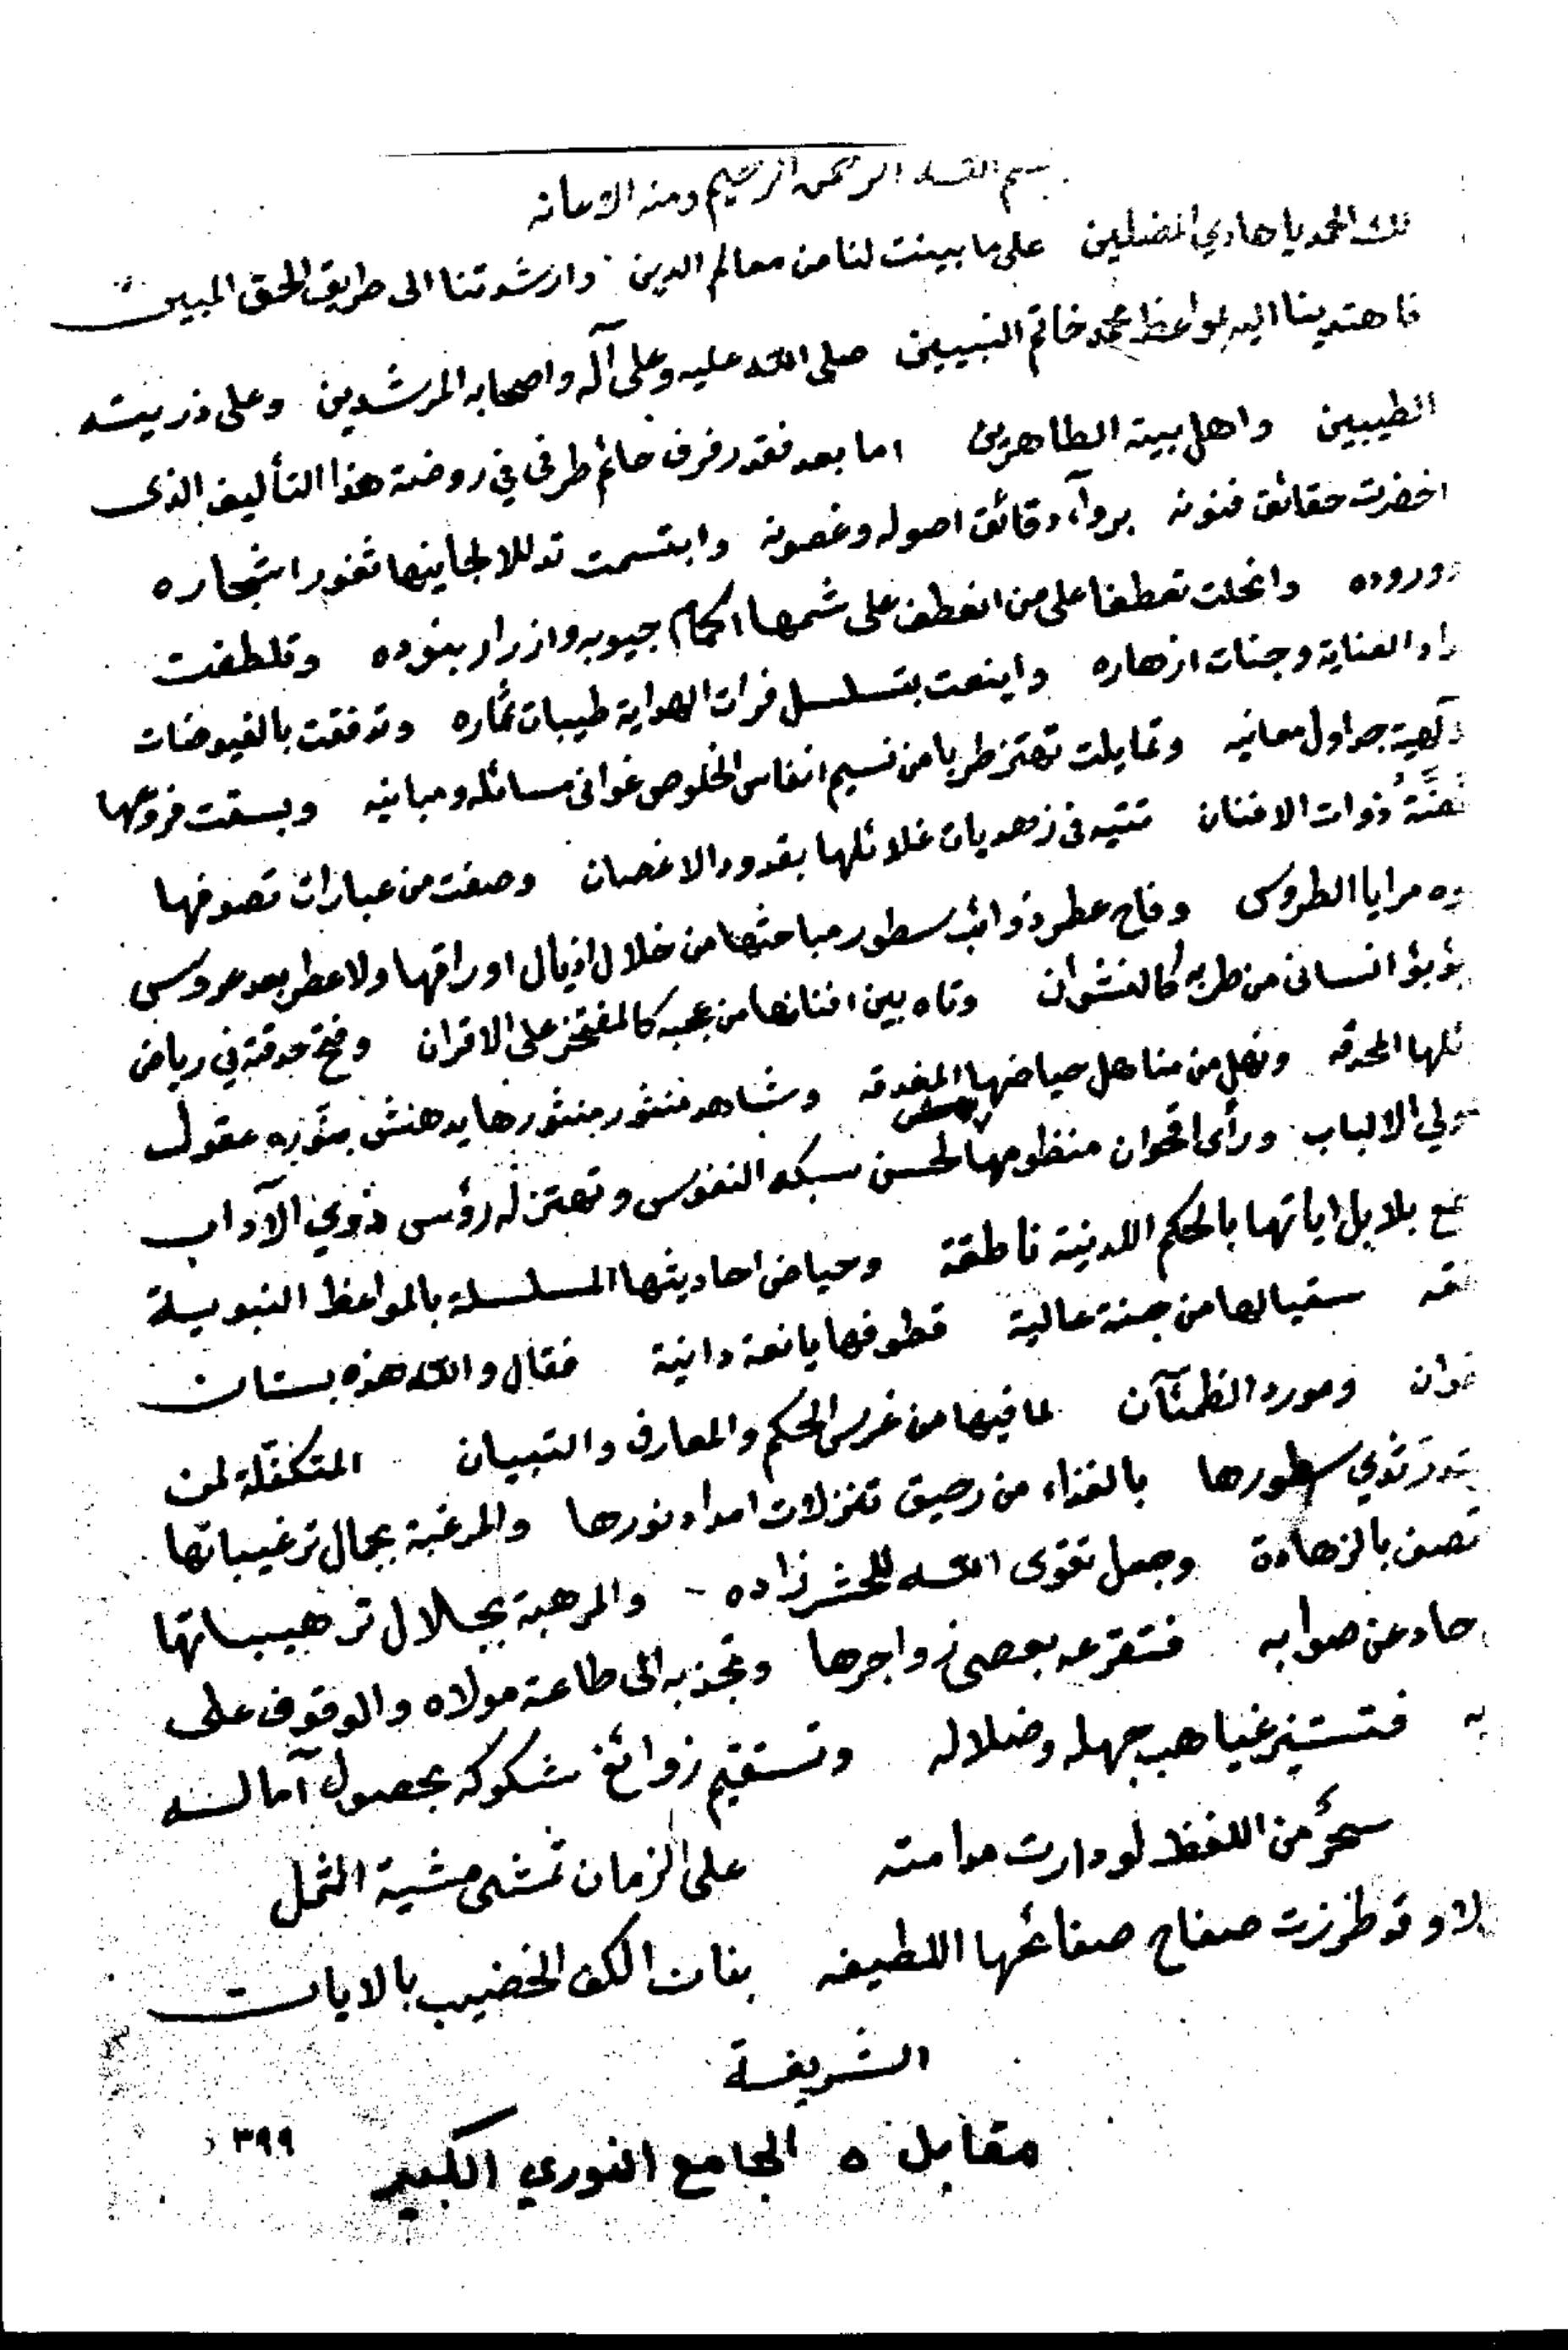 بسم الله الرحمن الرحيم ومنه الاعانه
لك الحمد يا هادي المضلين على ما بينت لنا من معالم الدين وارشدتنا الى طريق الحق المبين
فاهتدينا اليه بمواعظ محمد خاتم النبيين صلى الله عليه وعلى آله واصحابه المرشدين وعلى ذريته
الطيبين واهل بيته الطاهرين اما بعد فقد رفرف حائم طرفي في روضة هذا التأليف الذي
اخضرت حقائق فنونه برواء دقائق اصوله وغصونه وابتسمت تدللا لجانيها ثغور اشجاره
وروده وانحلت تعطفا على من انعطف على شمها اكمام جيوبه وازرار بنوده وتلطفت
العناية وجنات ازهاره واينعت بتسلسل فرات الهداية طيبات ثماره وتدفقت بالفيوضات
جداول معانيه وتمايلت تهتز طربا من نسيم انفاس الخلوص غواني مسائله ومبانيه وبسقت فروعها
ذوات الافنان تتيه في زهديات غلائلها بقدود الاغصان وصفت من عبارات تصوفها
مرايا الطروس وفاح عطر ذوائب سطور مباحثها من خلال اذيال اوراقها ولا عطر بعد عروس
بؤبؤ انساني من طربه كالنشوان وتاه بين افنانها من عجبه كالمفتخر على الاقران وفتح حدقة في رياض
المحدقه ونهل من مناهل حياضها المغدقه وشاهد منثور منثورها يدهش بنوره عقول
الالباب ورأى اقحوان منظومها لحسن سبكه النفوس وتهتز له رؤس ذوي الآداب
بلابل اياتها بالحكم اللدنية ناطقة وحياض احاديثها المسلسلة بالمواعظ النبوية
سقيا لها من جنة عالية قطوفها يانعة دانية فقال والله هذه بستان
ومورد الظمآن لما فيها من غرس الحكم والمعارف والتبيان المتكفلة لمن
ثدي سطورها بالغذاء من رحيق تنزلات امداد نورها والمرغبة بجمال ترغيباتها
تصف بالزهادة وجعل تقوى الله للحشر زاده والمرهبة بجلال ترهيباتها
حاد عن صوابه فتقرعه بعصي زواجرها وتجذبه الى طاعة مولاه والوقوف على
به فتستنير غياهب جهله وضلاله وتستقيم زوائغ شكوكه بحصول آماله
سحرٌ من اللفظ لو دارت مدامته على الزمان تمشى مشية الثمل
لا وقد طرزت صفاح صفائحها اللطيفه بنات الكف الخضيب بالايات
الشريفة
مقابل ٥ الجامع النوري الكبير
٣٩٩